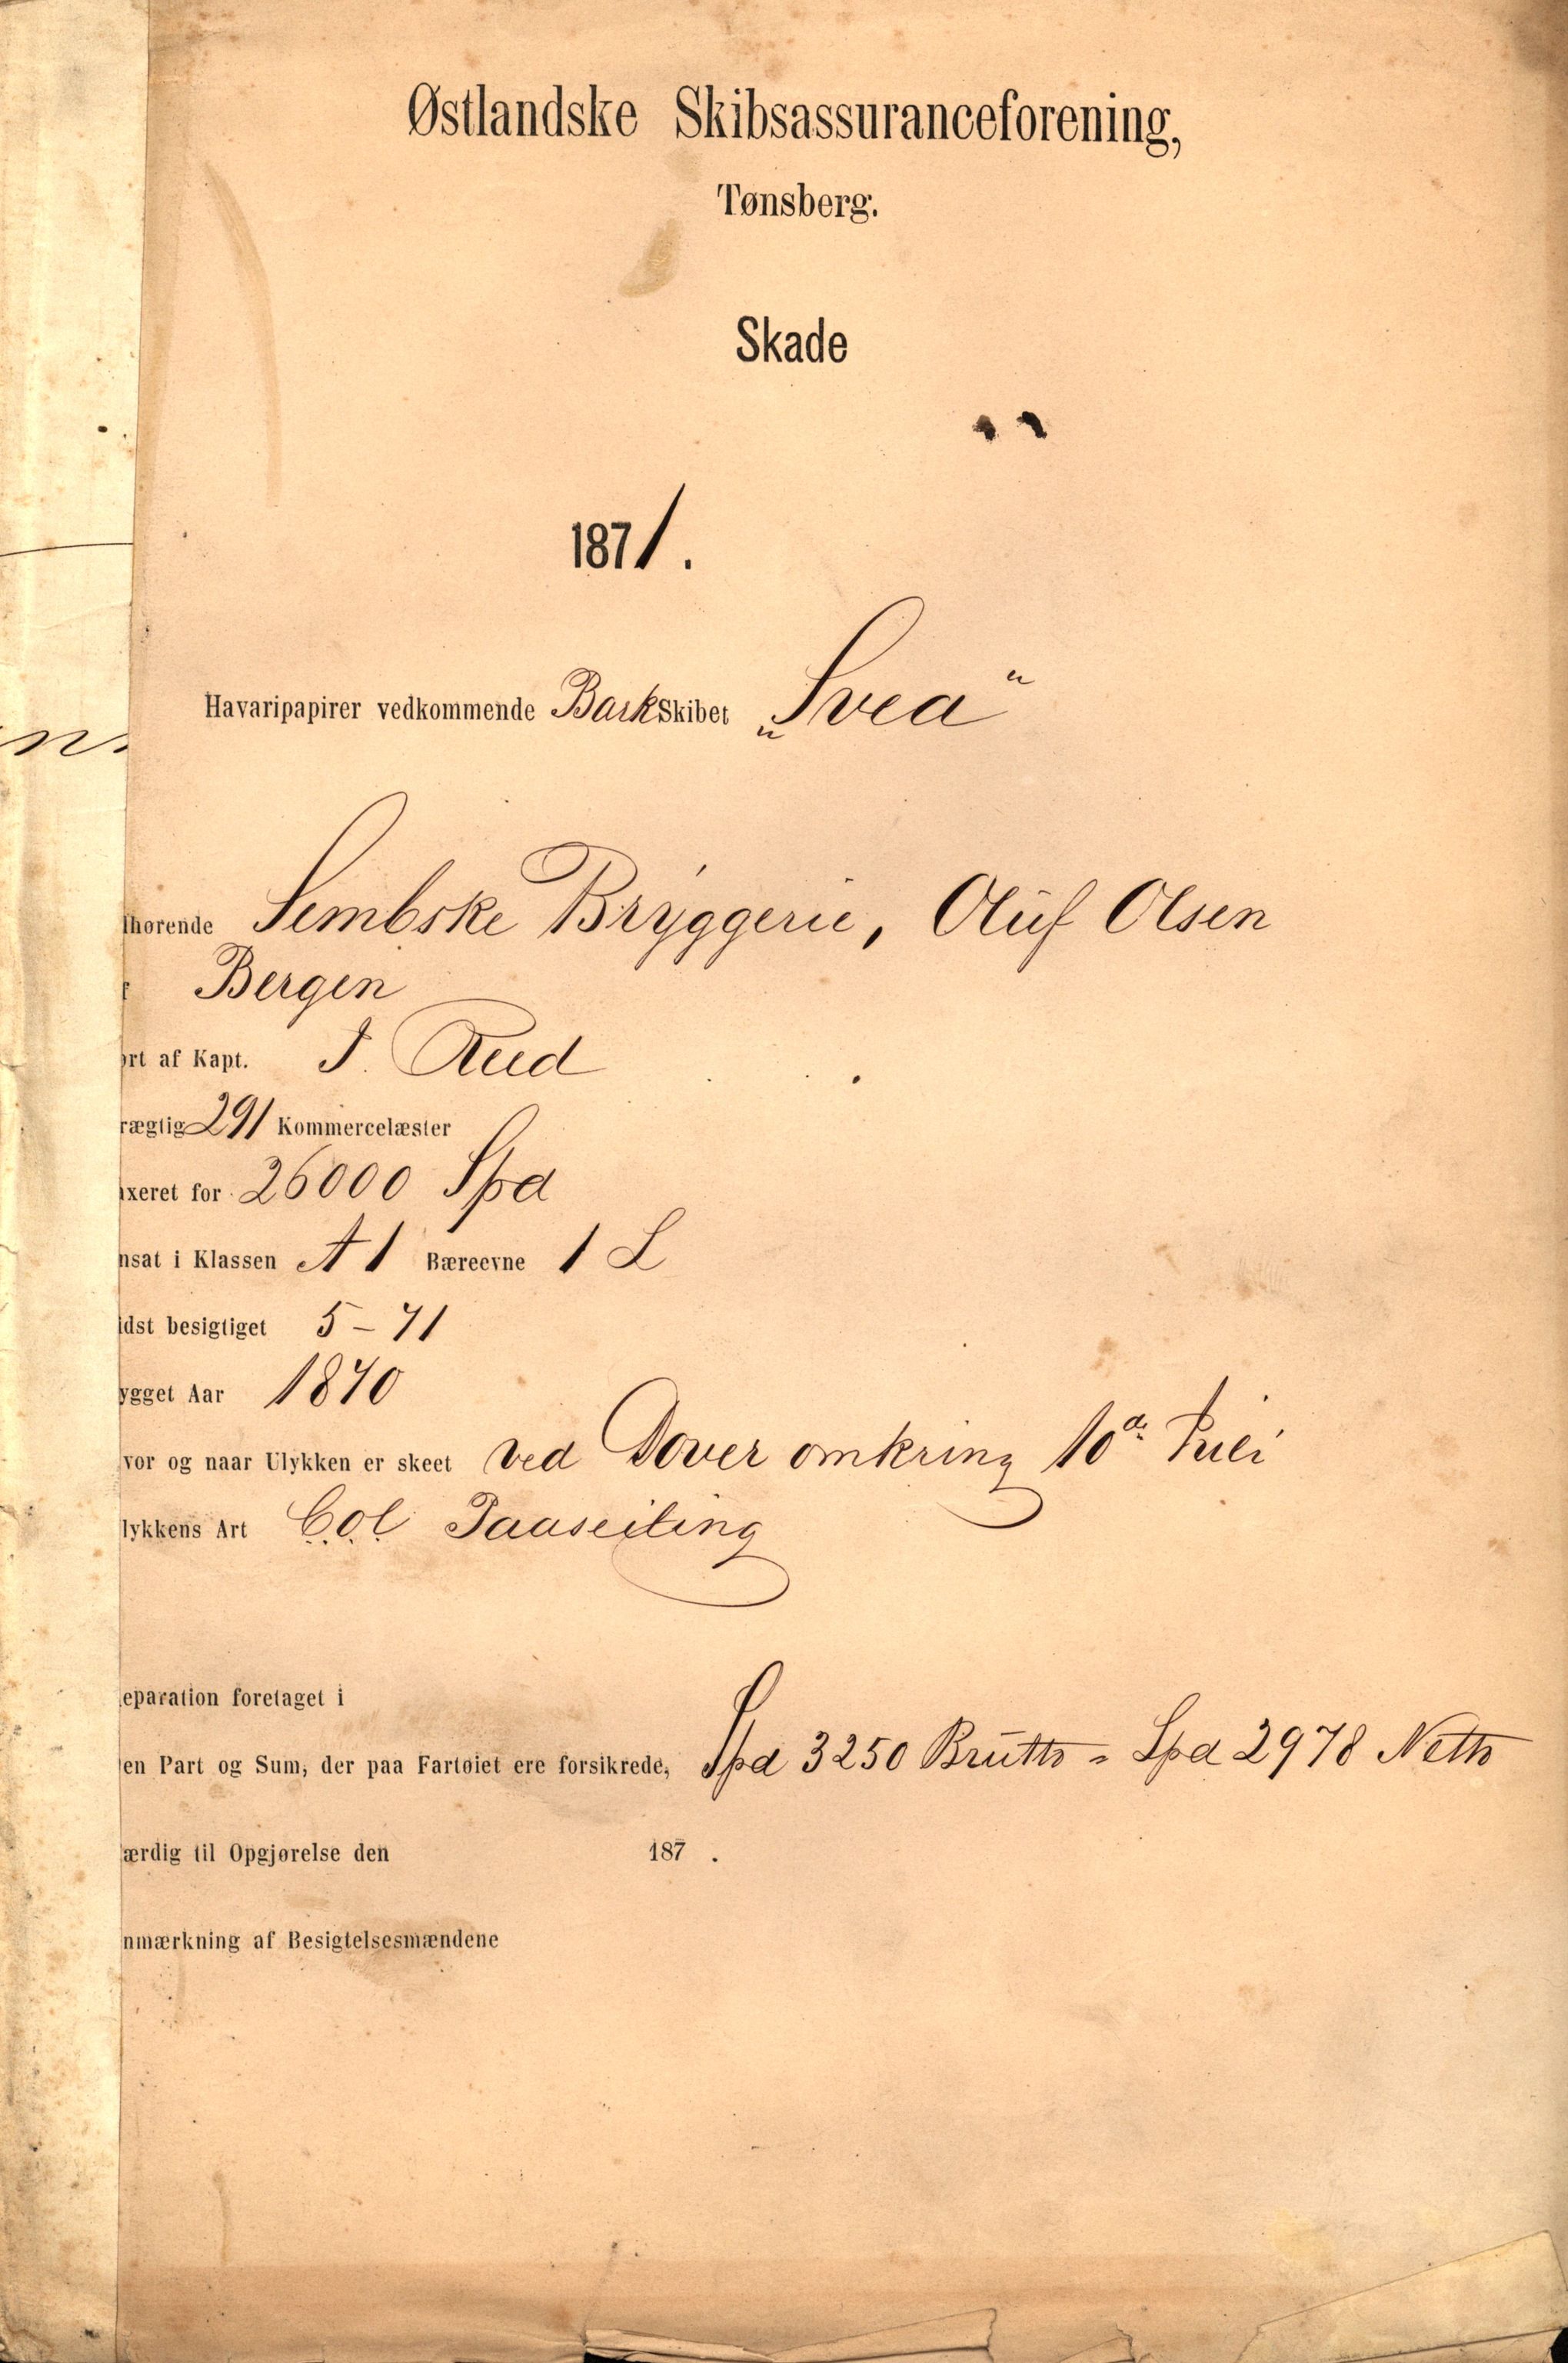 Østlandske Skibsassuranceforening,
Tønsberg.
Skade
1871.
Havaripapirer vedkommende BarkSkibet „Svea“
n.
lhørende Sembske Bryggerie, Oluf Olsen
f Bergen
ørt af Kapt. J. Rud
rægtig 291 Kommercelæster
axeret for 26000 Spd
nsat i Klassen A 1 Bæreevne 1 L
idst besigtiget 5-71
ygget Aar 1870
vor og naar Ulykken er skeet ved Dover omkring 10de Juli
lykkens Art Col Paaseiling
eparation foretaget i
en Part og Sum, der paa Fartøiet ere forsikrede, Spd 3250 Brutto = Spd 2978 Netto
ærdig til Opgjørelse den 187 .
nmærkning af Besigtelsesmændene